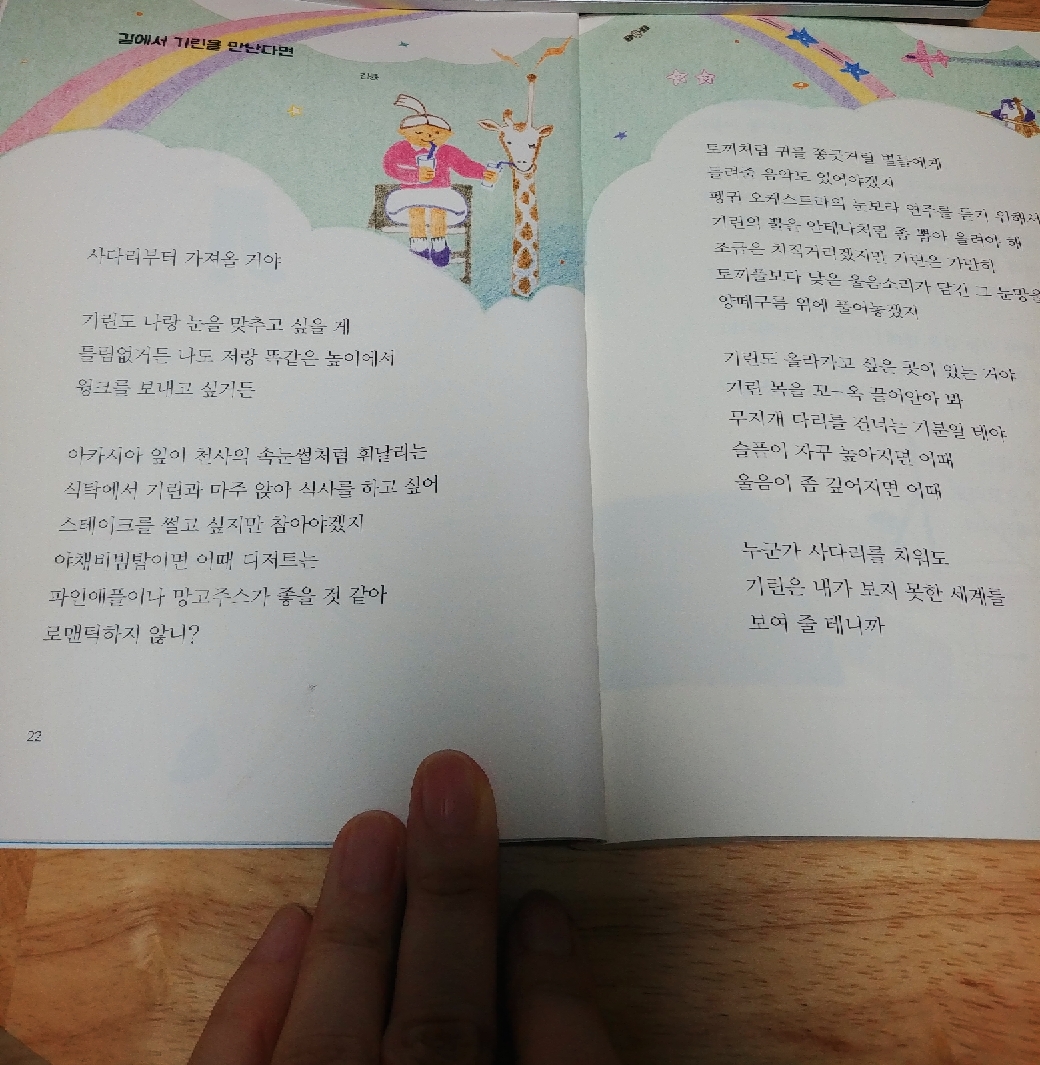 길에서 기린을 만난다면
김륭
사다리부터 가져올 거야
기린도 나랑 눈을 맞추고 싶을 게
틀림없거든 나도 저랑 똑같은 높이에서
윙크를 보내고 싶거든
아카시아 잎이 천사의 속눈썹처럼 휘날리는
식탁에서 기린과 마주 앉아 식사를 하고 싶어
스테이크를 썰고 싶지만 참아야겠지
야채비빔밥이면 어때 디저트는
파인애플이나 망고주스가 좋을 것 같아
로맨틱하지 않니?
22
토끼처럼 귀를 쫑긋거릴 별들에게
들려줄 음악도 있어야겠지
펭귄 오케스트라의 눈보라 연주를 듣기 위해서
기린의 뿔은 안테나처럼 좀 뽑아 올려야 해
조금은 지직거리겠지만 기린은 가만히
토끼풀보다 낮은 울음소리가 담긴 그 눈망을
양떼구름 위에 풀어놓겠지
기린도 올라가고 싶은 곳이 있는 거야
기린 목을 꼬-옥 끌어안아 봐
무지개 다리를 건너는 기분일 테야
슬픔이 자꾸 높아지면 어때
울음이 좀 길어지면 어때
누군가 사다리를 치워도
기린은 내가 보지 못한 세계를
보여 줄 테니까